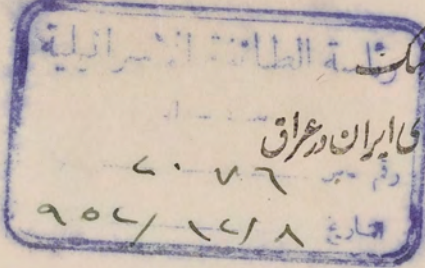 رئاسة الطائفة الاسرائيلية
ی ایران در عراق
رقم ٢٠٧٦
التاريخ ٩٥٢/١٢/٨